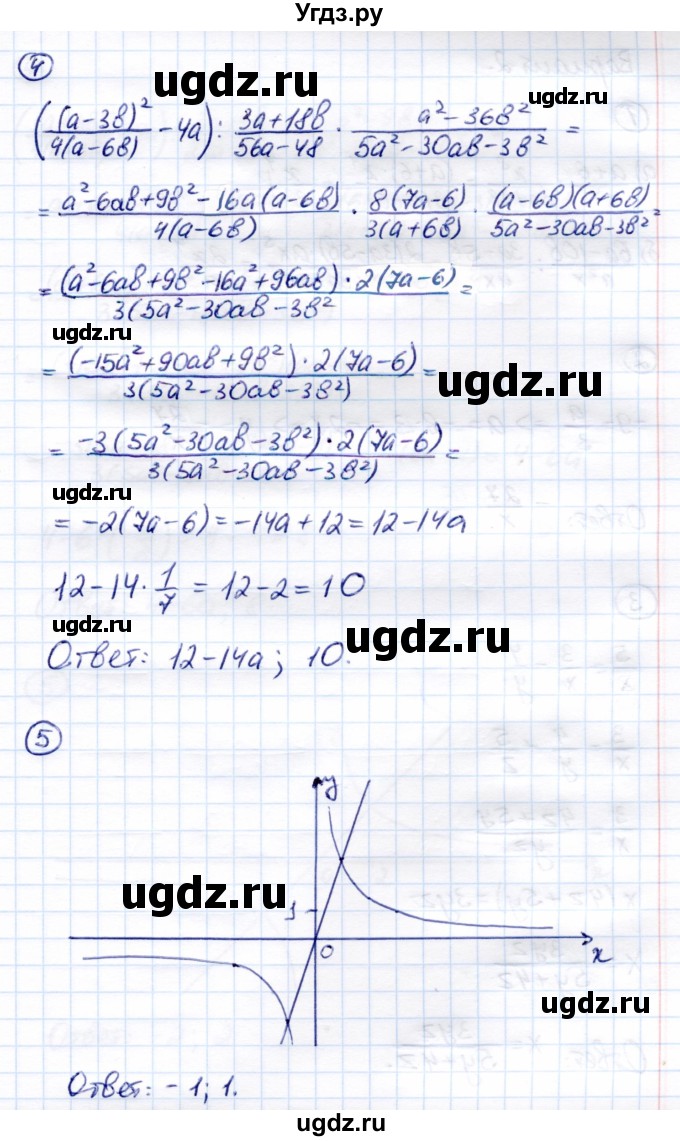 Угдз.ру
4
ugdz.ru
((a-3в)²/4(a-6в) - 4a) : (3a+18в)/(56a-48) · (a²-36в²)/(5a²-30aв-3в²) =
= (a²-6aв+9в²-16a(a-6в))/4(a-6в) · 8(7a-6)/3(a+6в) · (a-6в)(a+6в)/(5a²-30aв-3в²) =
= (a²-6aв+9в²-16a²+96aв)·2(7a-6)/3(5a²-30aв-3в² =
ugdz.ru
= (-15a²+90aв+9в²)·2(7a-6)/3(5a²-30aв-3в²) =
ugdz.ru
= -3(5a²-30aв-3в²)·2(7a-6)/3(5a²-30aв-3в²) =
ugdz.ru
= -2(7a-6) = -14a+12 = 12-14a
12-14·1/7 = 12-2 = 10
ugdz.ru
ugdz.ru
Ответ: 12-14a; 10.
5
y
ugdz.ru
0
x
ugdz.ru
Ответ: -1; 1.
ugdz.ru